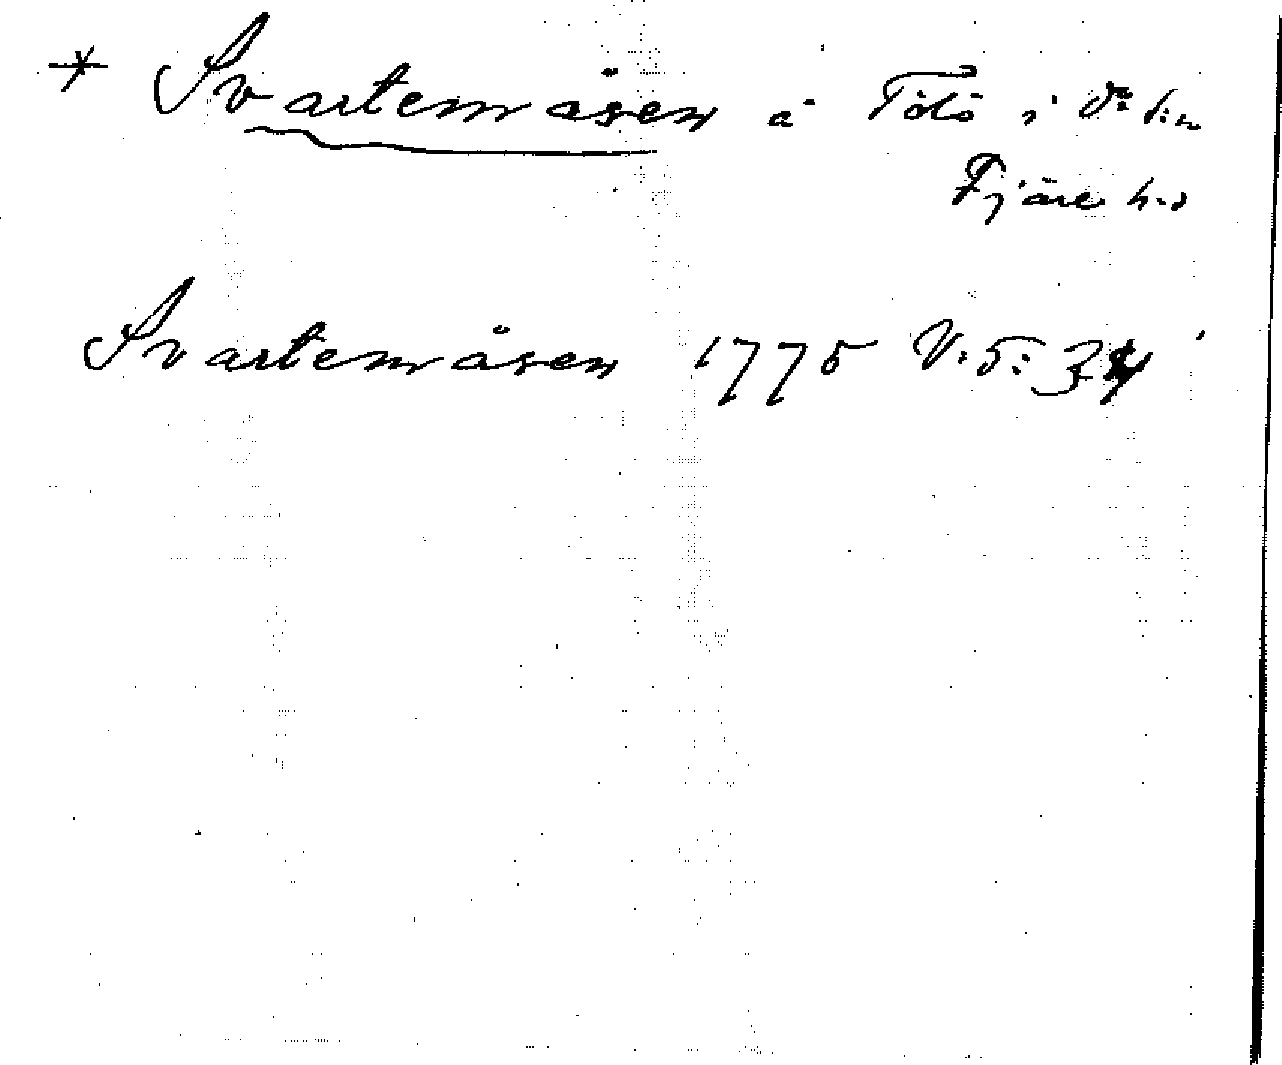 * Svartemåsen å Tölö i
Fjäre h.d
Svartemåsen 1775 V:5:34